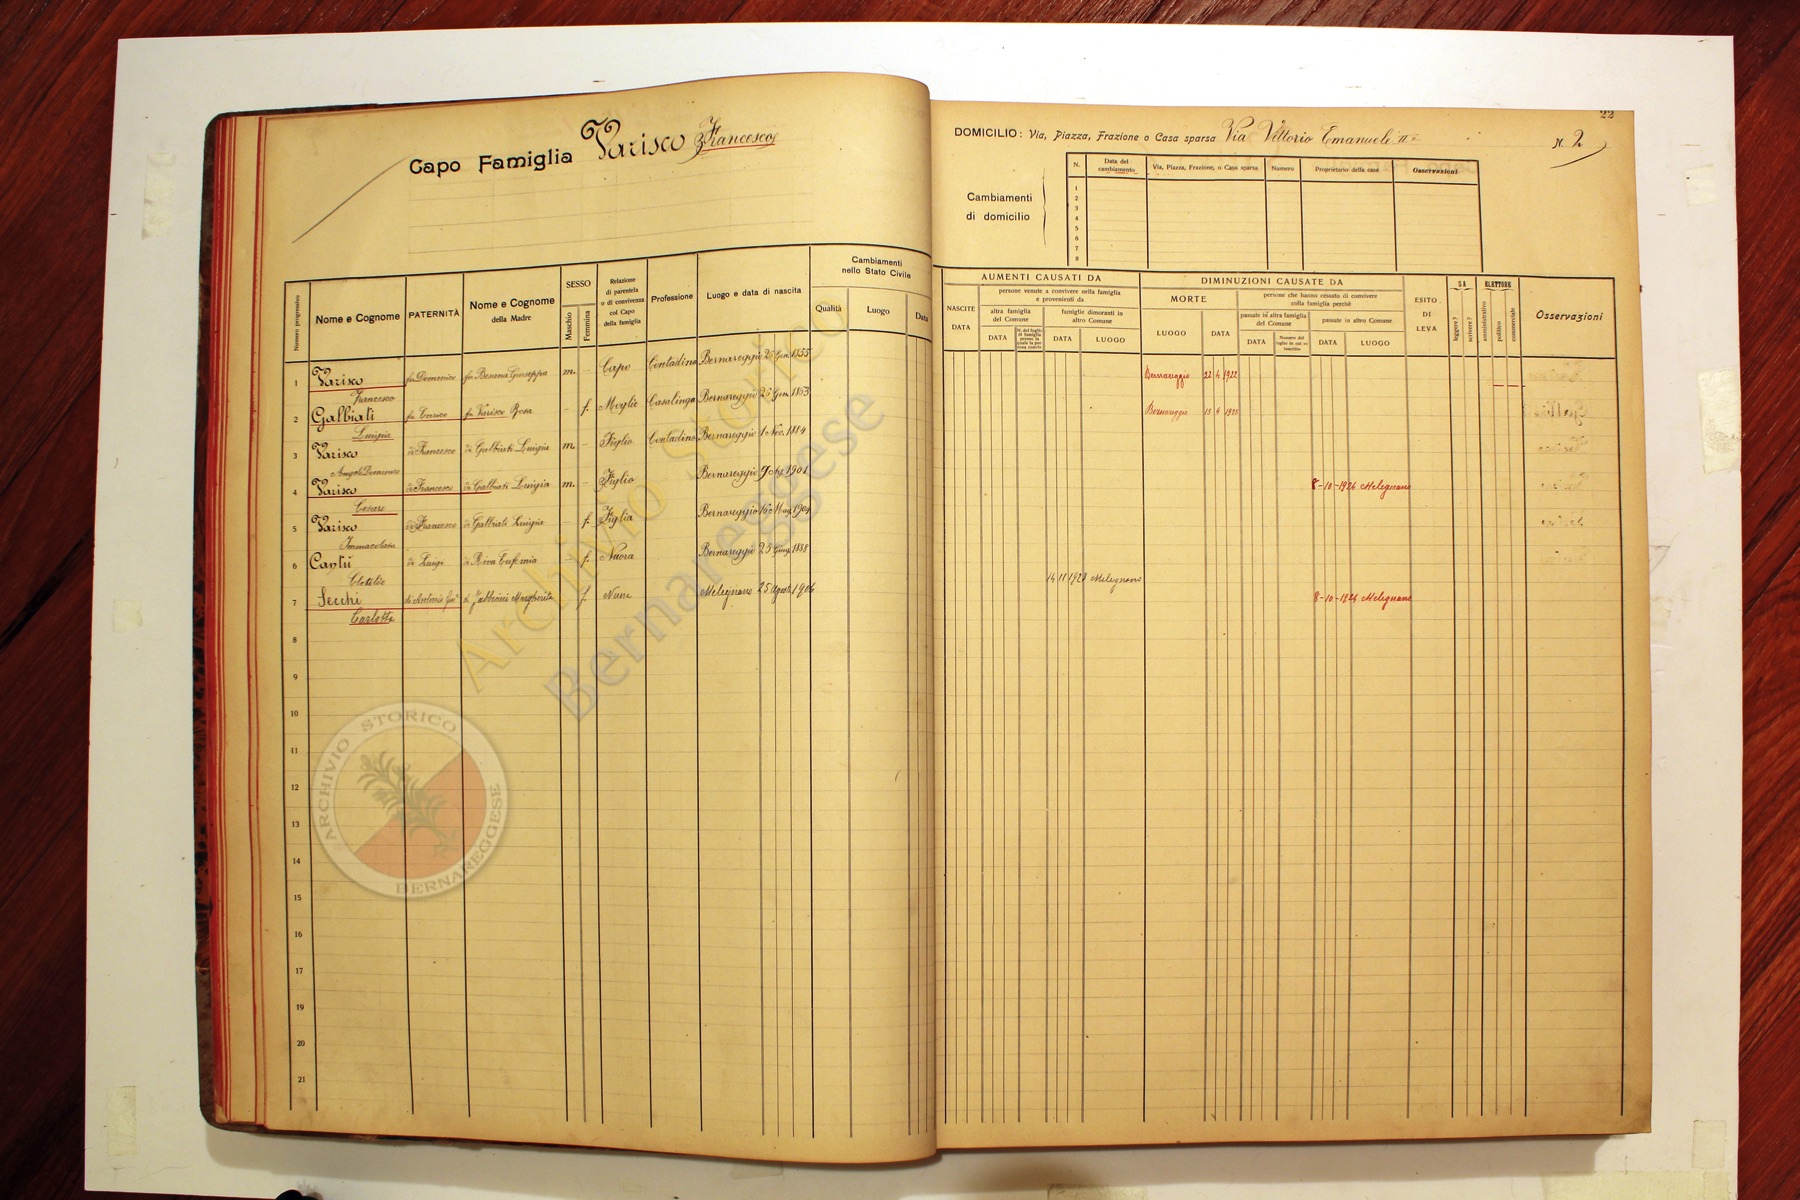 22
Capo Famiglia Varisco Francesco
DOMICILIO: Via, Piazza, Frazione o Casa sparsa Via Vittorio Emanuele II°
N. 2
Cambiamenti di domicilio
N. Data del cambiamento Via, Piazza, Frazione, o Casa sparsa Numero Proprietario della casa Osservazioni
1
2
3
4
5
6
7
8
Numero progressivo
Nome e Cognome
PATERNITÀ
Nome e Cognome della Madre
SESSO
Maschio
Femmina
Relazione di parentela o di convivenza col Capo della famiglia
Professione
Luogo e data di nascita
Cambiamenti nello Stato Civile
Qualità
Luogo
Data
AUMENTI CAUSATI DA
NASCITE
DATA
persone venute a convivere nella famiglia e provenienti da
altra famiglia del Comune
DATA
famiglie dimoranti in altro Comune
DATA
LUOGO
DIMINUZIONI CAUSATE DA
MORTE
LUOGO
DATA
persone che hanno cessato di convivere colla famiglia perchè
passate in altra famiglia del Comune
DATA
Numero del foglio in cui va inscritto
passate in altro Comune
DATA
LUOGO
ESITO DI LEVA
SA
leggere?
scrivere?
ELETTORE
amministrativo
politico
commerciale
Osservazioni
1 Varisco Francesco fu Domenico fu Besana Giuseppa m. - Capo Contadino Bernareggio Gen. 1855 Bernareggio 22 4 1922
2 Galbiati Luigia fu Enrico fu Varisco Rosa - f. Moglie Casalinga Bernareggio 26 Gen. 1853 Bernareggio 15 4
3 Varisco Angelo Domenico di Francesco di Galbiati Luigia m. - Figlio Contadino Bernareggio 1 Nov. 1884
4 Varisco Cesare di Francesco di Galbiati Luigia m. - Figlio Bernareggio 9 1901 8-10-1924 Melegnano
5 Varisco Immacolata di Francesco di Galbiati Luigia - f. Figlia Bernareggio 16 Mag. 1904
6 Cantù Clotilde di Luigi di Riva Eufemia - f. Nuora Bernareggio 25 1888
7 Secchi Carlotta di Antonio di Margherita f. Melegnano 25 Agosto 1906 14 11 Melegnano 8-10-1924 Melegnano
8
9
10
11
12
13
14
15
16
17
19
20
21
Archivio Storico
Bernareggese
ARCHIVIO STORICO
BERNAREGGESE